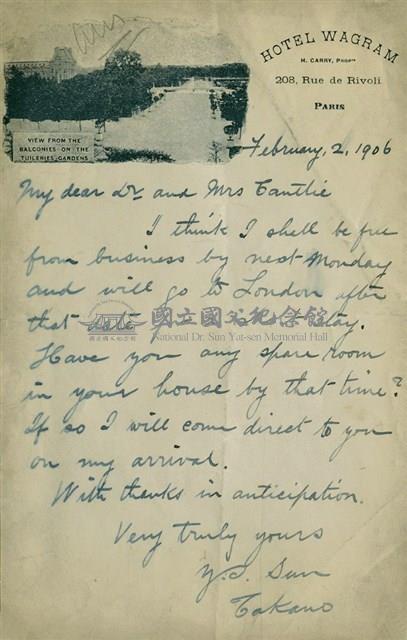 Ans.
HOTEL WAGRAM
H. CARRY, Propr
208, Rue de Rivoli
PARIS
VIEW FROM THE
BALCONIES ON THE
TUILERIES GARDENS
February, 2, 1906
My dear Dr. and Mrs Cantlie
I think I shell be free
from business by next Monday
and will go to London after
that date stay.
國立國父紀念館
National Dr. Sun Yat-sen Memorial Hall
Have you any spare room
in your house by that time?
If so I will come direct to you
on my arrival.
With thanks in anticipation.
Very truly yours
Y.S. Sun
Takano